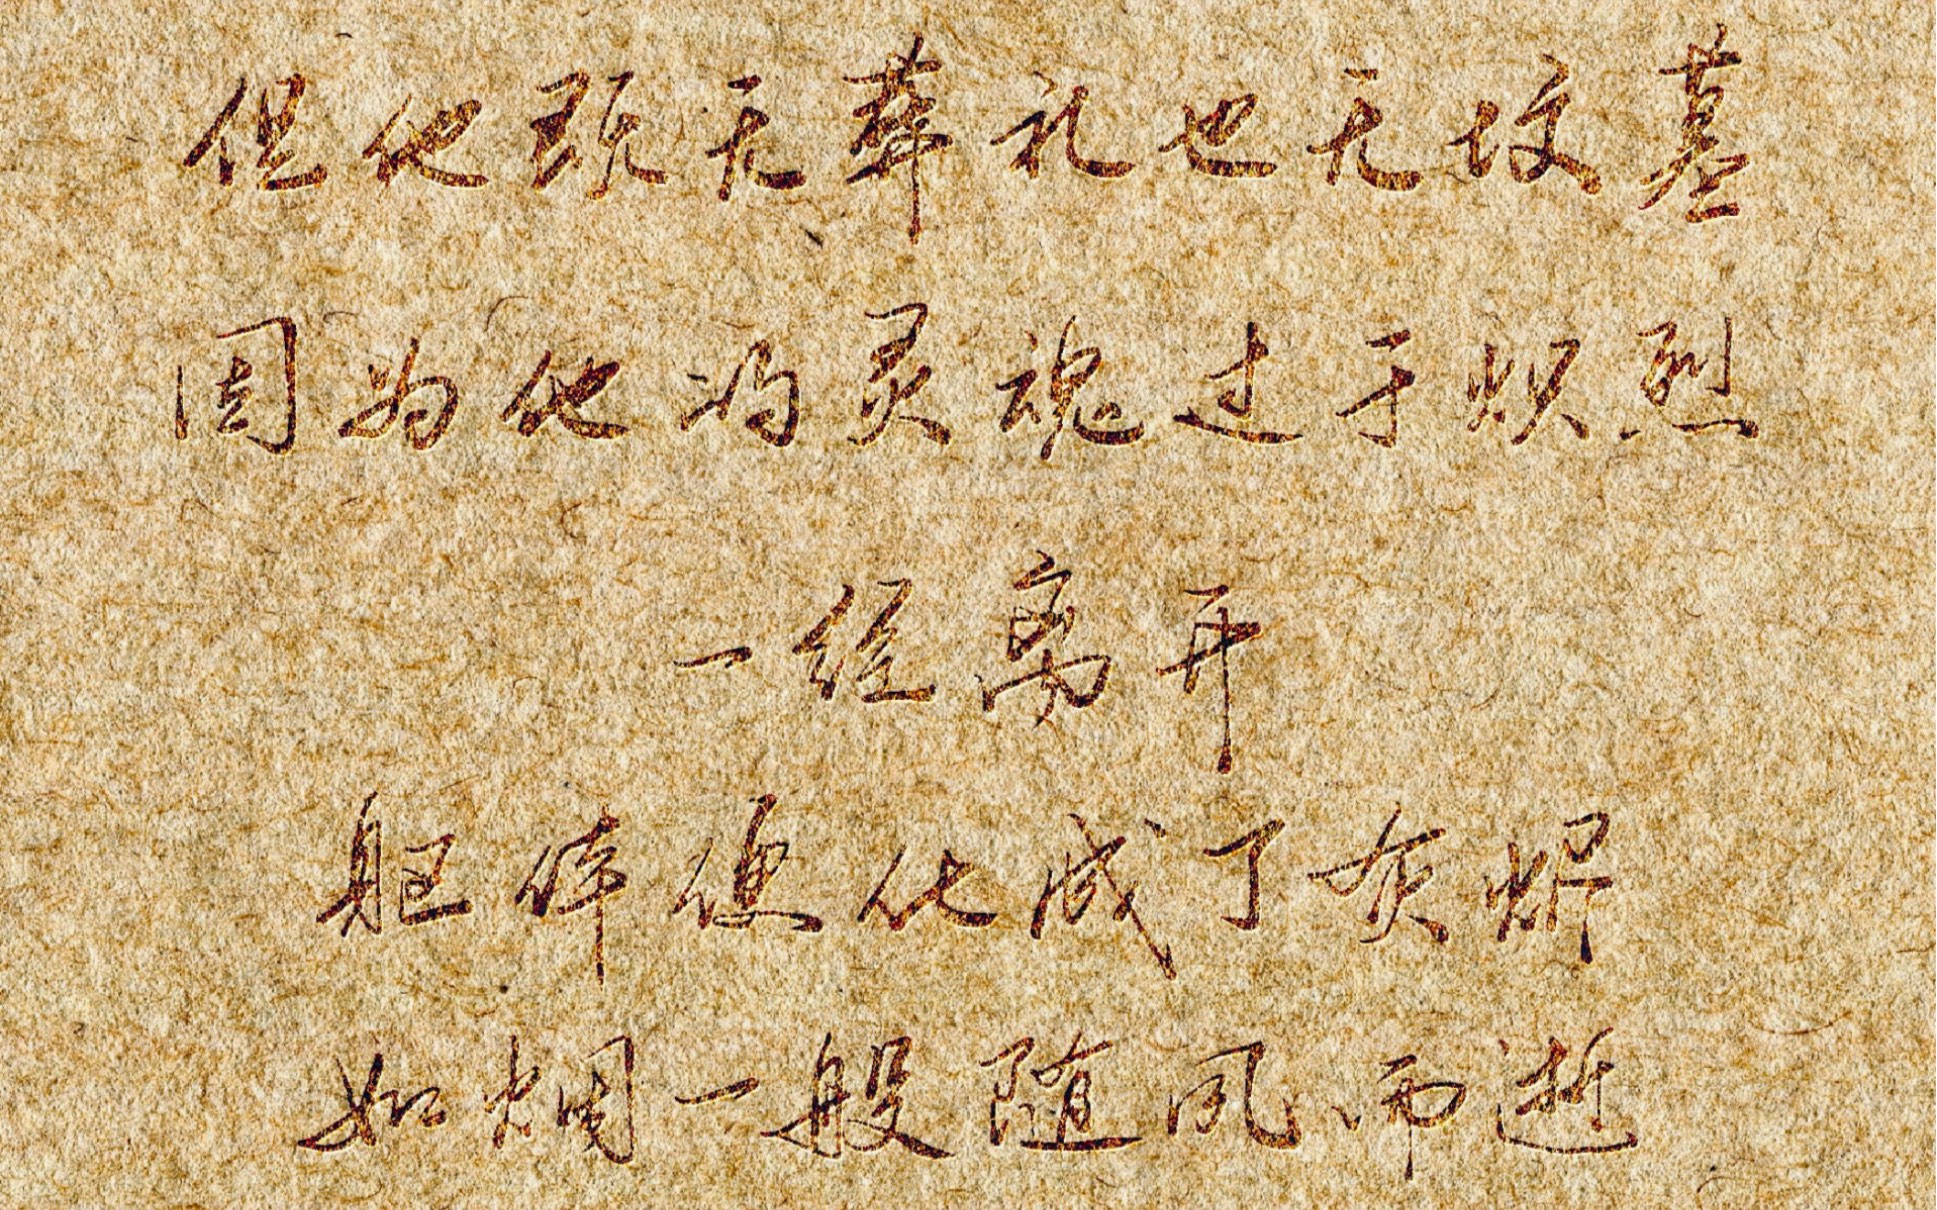 但他既无葬礼也无坟墓
因为他的灵魂过于炽烈
一经离开
躯体便化成了灰烬
如烟一般随风而逝